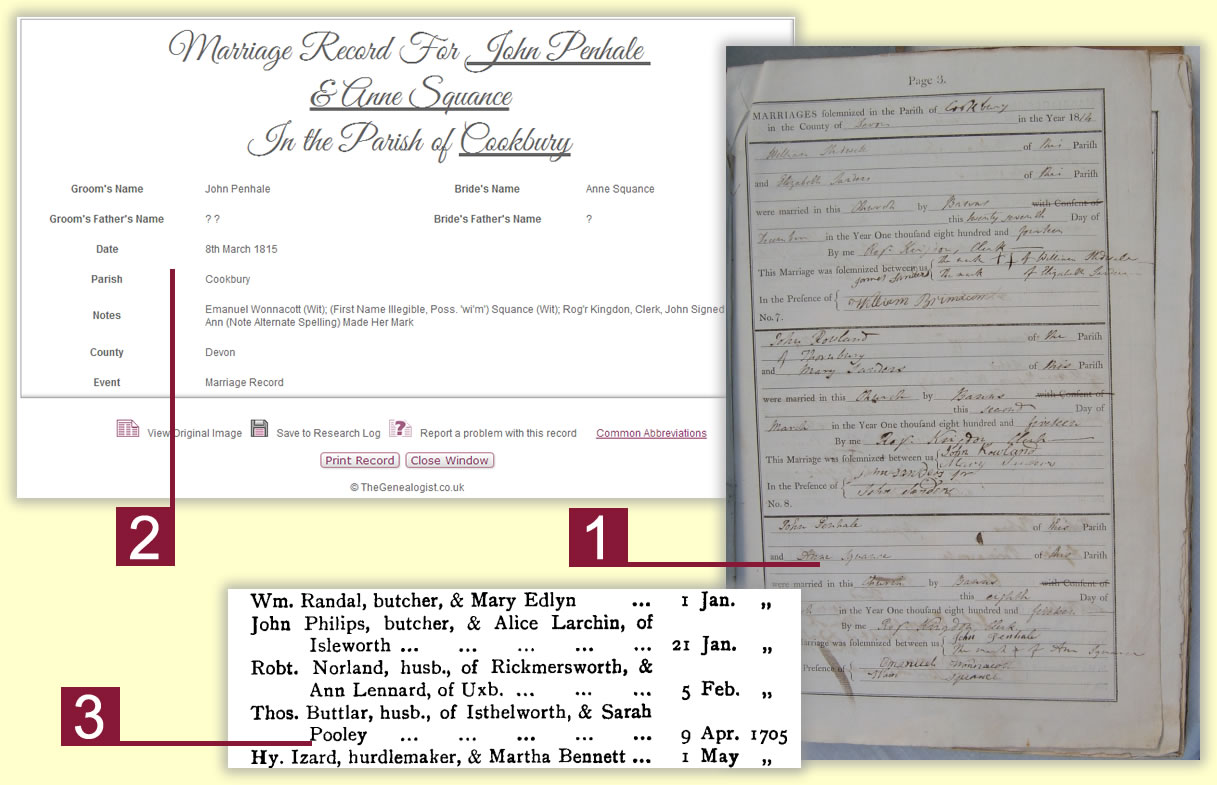 Marriage Record For John Penhale
& Anne Squance
In the Parish of Cookbury
Groom's Name John Penhale Bride's Name Anne Squance
Groom's Father's Name ? ? Bride's Father's Name ?
Date 8th March 1815
Parish Cookbury
Notes Emanuel Wonnacott (Wit); (First Name Illegible, Poss. 'wi'm') Squance (Wit); Rog'r Kingdon, Clerk, John Signed
Ann (Note Alternate Spelling) Made Her Mark
County Devon
Event Marriage Record
View Original Image Save to Research Log Report a problem with this record Common Abbreviations
Print Record Close Window
© TheGenealogist.co.uk
2
1
3
Wm. Randal, butcher, & Mary Edlyn ... 1 Jan. „
John Philips, butcher, & Alice Larchin, of
Isleworth ... ... ... ... ... 21 Jan. „
Robt. Norland, husb., of Rickmersworth, &
Ann Lennard, of Uxb. ... ... ... 5 Feb. „
Thos. Buttlar, husb., of Isthelworth, & Sarah
Pooley ... ... ... ... 9 Apr. 1705
Hy. Izard, hurdlemaker, & Martha Bennett ... 1 May „
Page 3.
MARRIAGES solemnized in the Parish of Cookbury
in the County of Devon in the Year 1814
William of this Parish
and Elizabeth Sanders of this Parish
were married in this Church by Banns with Consent of
this twenty seventh Day of
in the Year One thousand eight hundred and fourteen
By me Rogr Kingdon, Clerk
This Marriage was solemnized between us the mark of William
James Sanders the mark of Elizabeth Sanders
In the Presence of William
No. 7.
John Rowland of the Parish
of Thornbury
and Mary Sanders of this Parish
were married in this Church by Banns with Consent of
this second Day of
March in the Year One thousand eight hundred and fifteen
By me Rogr Kingdon Clerk
This Marriage was solemnized between us John Rowland
Mary Sanders
In the Presence of John Sanders
No. 8.
John Penhale of this Parish
and Anne Squance of this Parish
were married in this Church by Banns with Consent of
this eighth Day of
in the Year One thousand eight hundred and fifteen
By me Rogr Kingdon Clerk
arriage was solemnized between us John Penhale
the mark of Ann Squance
Presence of Emanuel Wonnacott
Squance